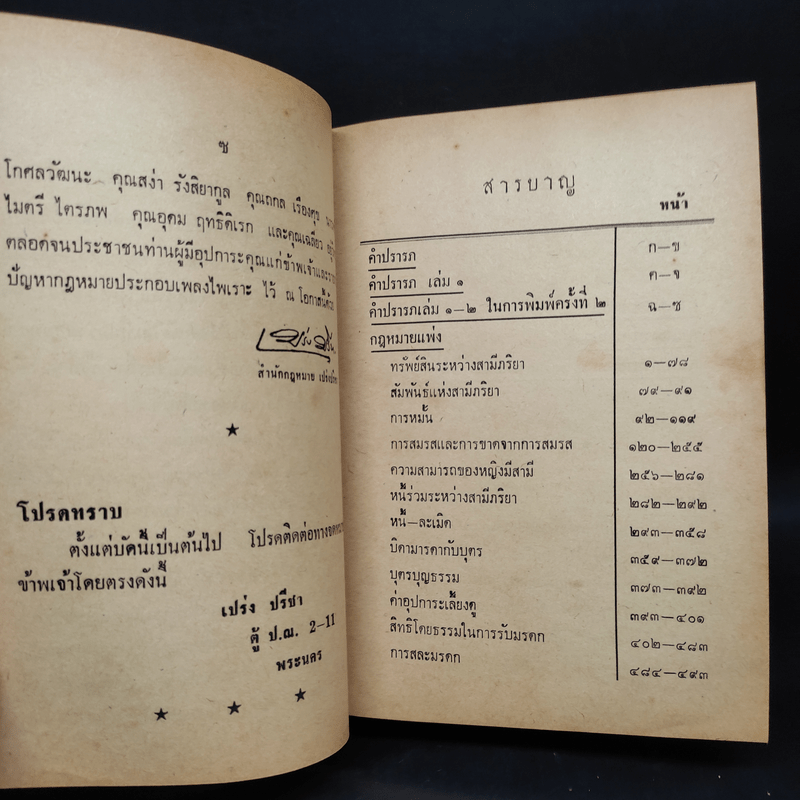 ซ
โกศลวัฒนะ คุณสง่า รังสิยากูล คุณถกล เรืองศุข
ไมตรี ไตรภพ คุณอุดม ฤทธิดิเรก และคุณเฉลียว
ตลอดจนประชาชนท่านผู้มีอุปการะคุณแก่ข้าพเจ้าและ
ปัญหากฎหมายประกอบเพลงไพเราะ ไว้ ณ โอกาสนี้ด้วย
สำนักกฎหมาย
โปรดทราบ
ตั้งแต่บัดนี้เป็นต้นไป โปรดติดต่อทาง
ข้าพเจ้าโดยตรงดังนี้
เปร่ง ปรีชา
ตู้ ป.ณ. 2-11
พระนคร
สารบาญ
หน้า
คำปรารภ ก—ข
คำปรารภ เล่ม ๑ ค—จ
คำปรารภเล่ม ๑—๒ ในการพิมพ์ครั้งที่ ๒ ฉ—ซ
กฎหมายแพ่ง
ทรัพย์สินระหว่างสามีภริยา ๑—๗๘
สัมพันธ์แห่งสามีภริยา ๗๙—๙๑
การหมั้น ๙๒—๑๑๙
การสมรสและการขาดจากการสมรส ๑๒๐—๒๕๕
ความสามารถของหญิงมีสามี ๒๕๖—๒๘๑
หนี้ร่วมระหว่างสามีภริยา ๒๘๒—๒๙๒
หนี้—ละเมิด ๒๙๓—๓๕๘
บิดามารดากับบุตร ๓๕๙—๓๗๒
บุตรบุญธรรม ๓๗๓—๓๙๒
ค่าอุปการะเลี้ยงดู ๓๙๓—๔๐๑
สิทธิโดยธรรมในการรับมรดก ๔๐๒—๔๘๓
การสละมรดก ๔๘๔—๔๙๓